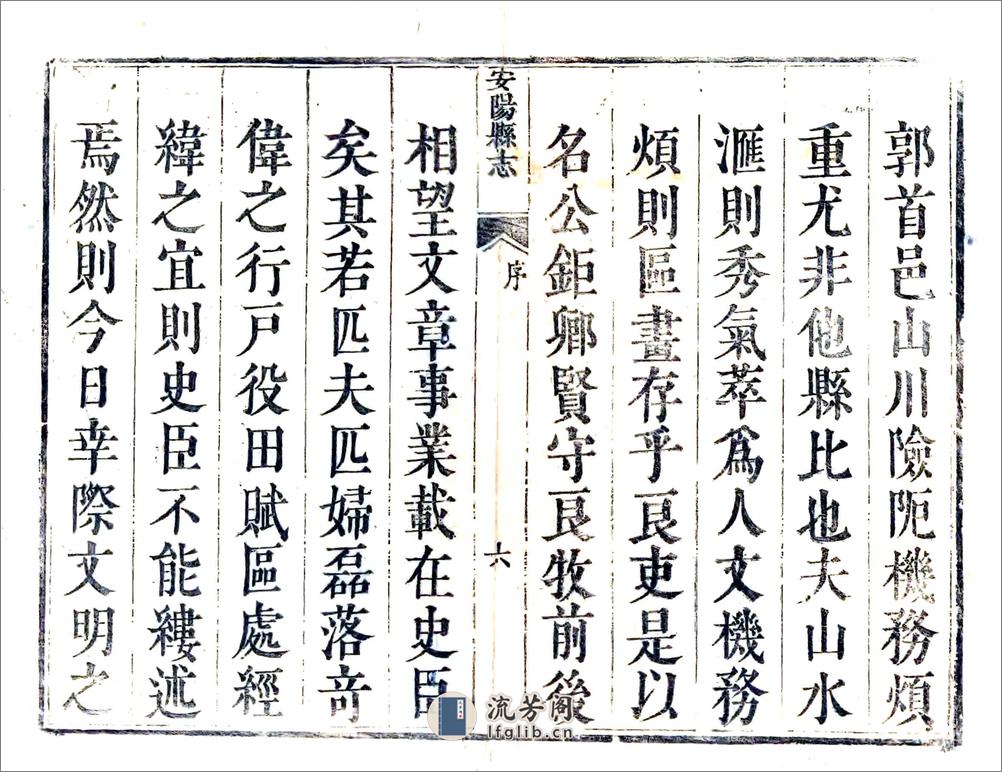 郭首邑山川險阨機務煩
重尤非他縣比也夫山水
滙則秀氣萃爲人文機務
煩則區畫存乎良吏是以
名公鉅卿賢守良牧前後
安陽縣志
序
六
相望文章事業載在史臣
矣其若匹夫匹婦磊落奇
偉之行戸役田賦區處經
緯之宜則史臣不能縷述
焉然則今日幸際文明之
流芳阁
lfglib.cn